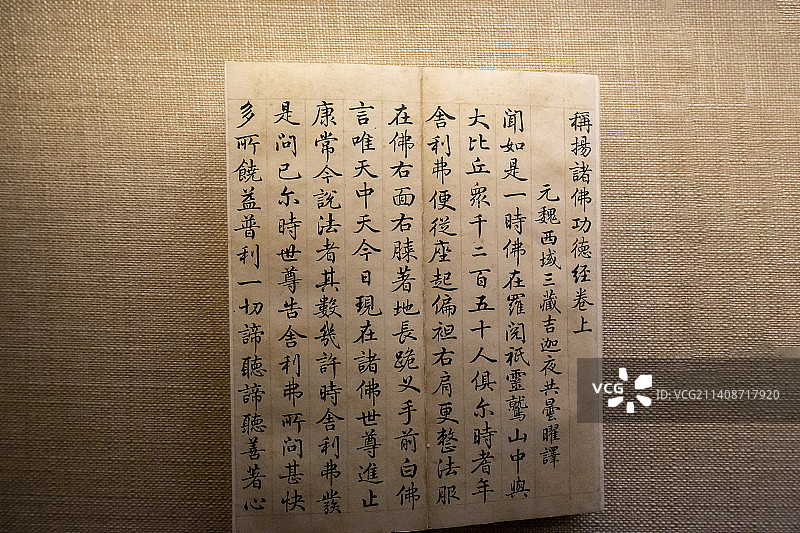 稱揚諸佛功德経卷上
元魏西域三藏吉迦夜共曇曜譯
聞如是一時佛在羅閱祇靈鷲山中與
大比丘眾千二百五十人俱尒時者年
舍利弗便從座起偏袒右肩更整法服
在佛右面右膝著地長跪叉手前白佛
言唯天中天今日現在諸佛世尊進止
康常今說法者其數幾許時舍利弗發
是問已尒時世尊告舍利弗所問甚快
多所饒益普利一切諦聽諦聽善著心
VCG®
视觉中国
ID:VCG211408717920